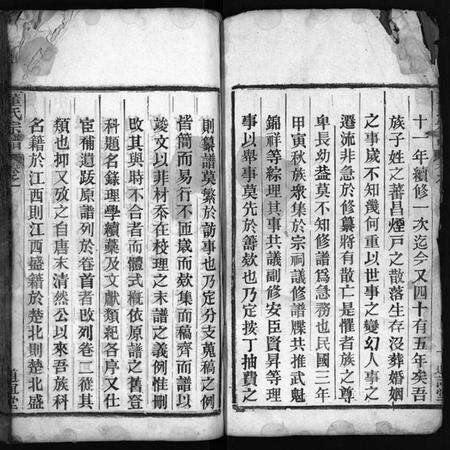 十一年續修一次迄今又四十有五年矣吾
族子姓之蕃昌煙戸之散落生存沒葬婚姻
之事歲不知幾何重以世事之變幻人事之
遷流非急於修纂將有散亡是懼者族之尊
卑長幼莫不知修譜爲急務也民國三年
甲寅秋族衆集於宗祠議修譜牒共推武魁
錦祥等綜理其事共議副修安臣賢昇等理
事以舉事莫先於籌欵也乃定按丁抽費之
則纂譜莫繁於勷事也乃定分支蒐稿之例
皆簡而易行不匝歲而欵集而稿齊而譜以
竣文以非材忝在校理之末譜之義例惟刪
改其與時不合者而體式槪依原譜之舊登
科題名錄理學續藁及文獻類紀各序又仕
宦補遺跋原譜列於卷首者改列卷二從其
類也抑又攷之自唐末清然公以來吾族科
名籍於江西則江西盛籍於楚北則楚北盛
氏宗譜